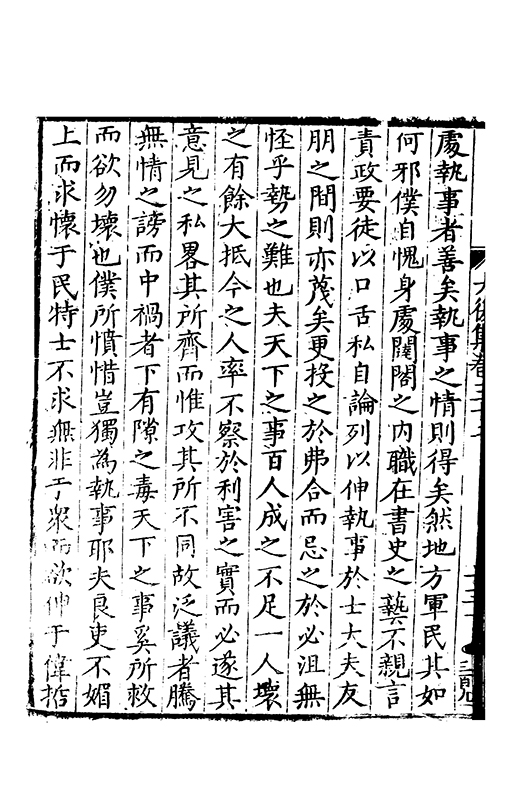 處執事者善矣執事之情則得矣然地方軍民其如
何邪僕自愧身處闥閤之內職在書史之藝不親言
責政要徒以口舌私自論列以伸執事於士大夫友
朋之間則亦蔑矣更投之於弗合而忌之於必沮無
怪乎勢之難也夫天下之事百人成之不足一人壞
之有餘大抵今之人率不察於利害之實而必遂其
意見之私畧其所齊而惟攻其所不同故泛議者騰
無情之謗而中禍者下有隙之毒天下之事奚所救
而欲勿壞也僕所憤惜豈獨為執事耶夫良吏不媚
上而求懷于民特士不求無非于衆而欲伸于偉哲